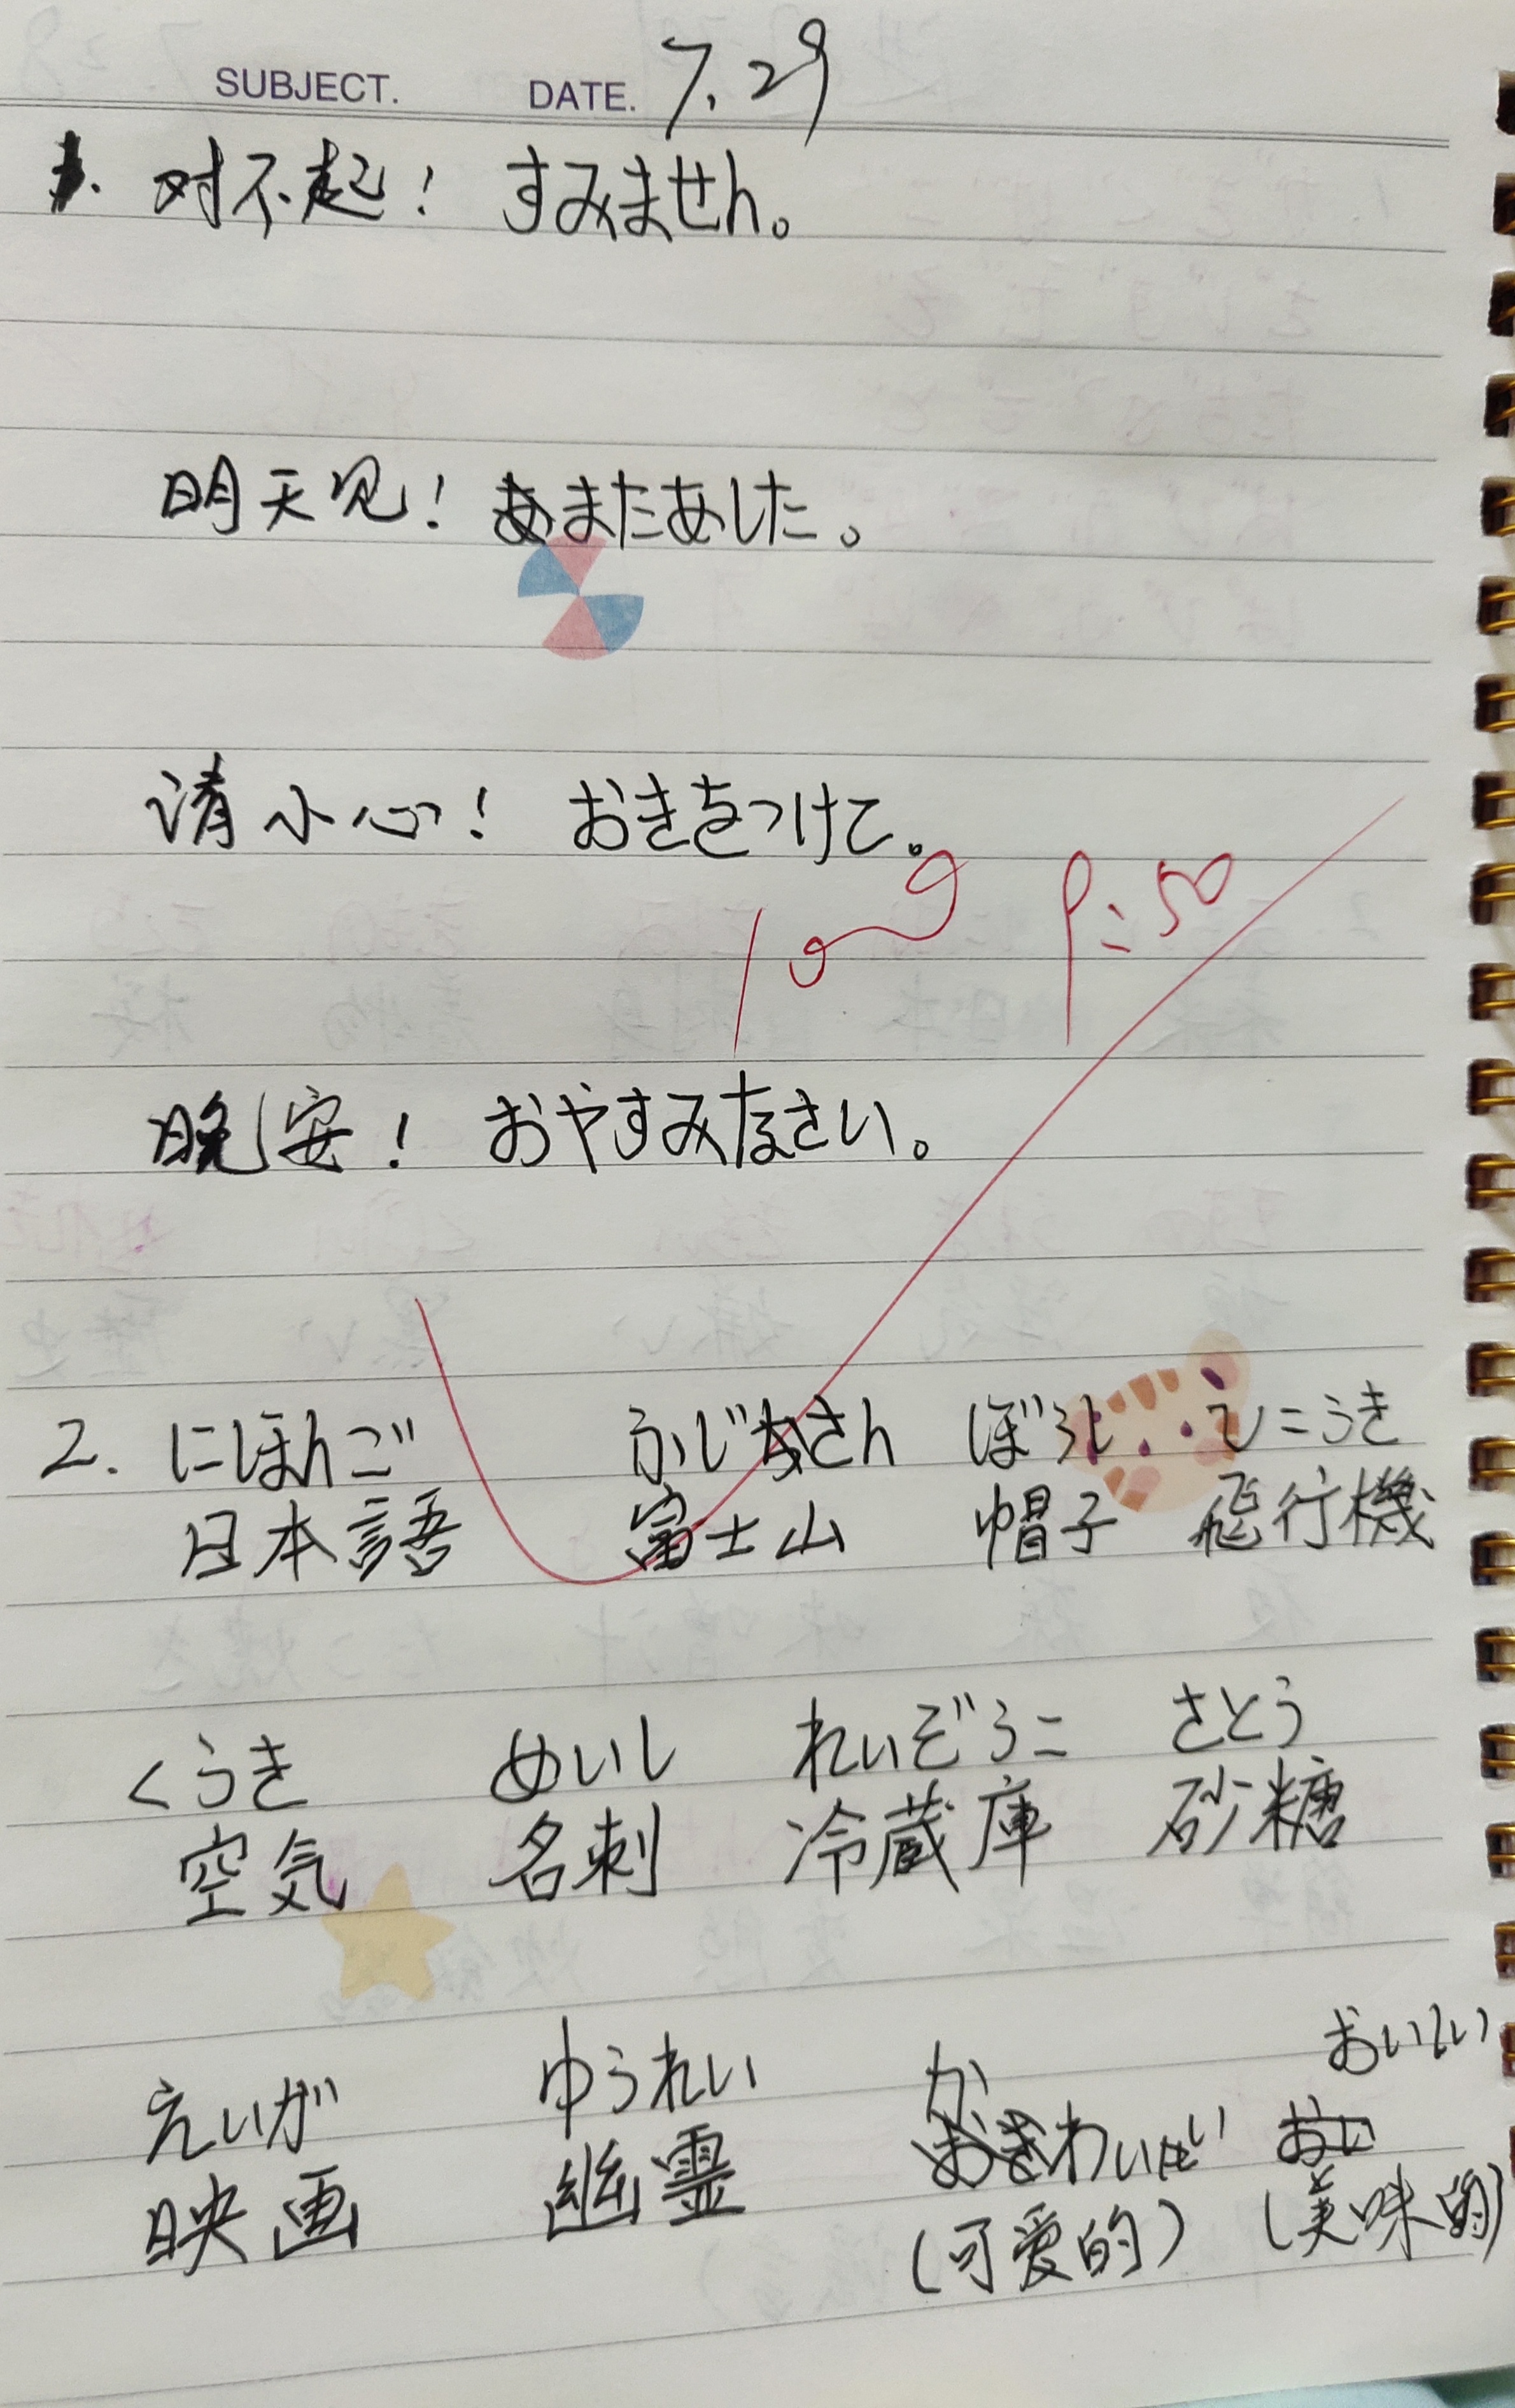 SUBJECT. DATE. 7.29
1. 对不起！ すみません。
明天见！ またあした。
请小心！ おきをつけて。
100 9:50
晚安！ おやすみなさい。
2. にほんご ふじさん ぼうし ひこうき
日本語 富士山 帽子 飛行機
くうき めいし れいぞうこ さとう
空気 名刺 冷蔵庫 砂糖
えいが ゆうれい かわいい おいしい
映画 幽霊 (可爱的) (美味的)